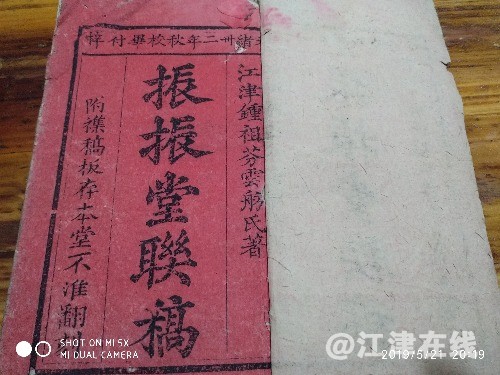 緒卅二年秋校畢付梓
江津鍾祖芬雲舫氏著
振振堂聯稿
附襍稿板存本堂不准翻
SHOT ON MI 5X
MI DUAL CAMERA
@江津在线
2019/5/21 20:19